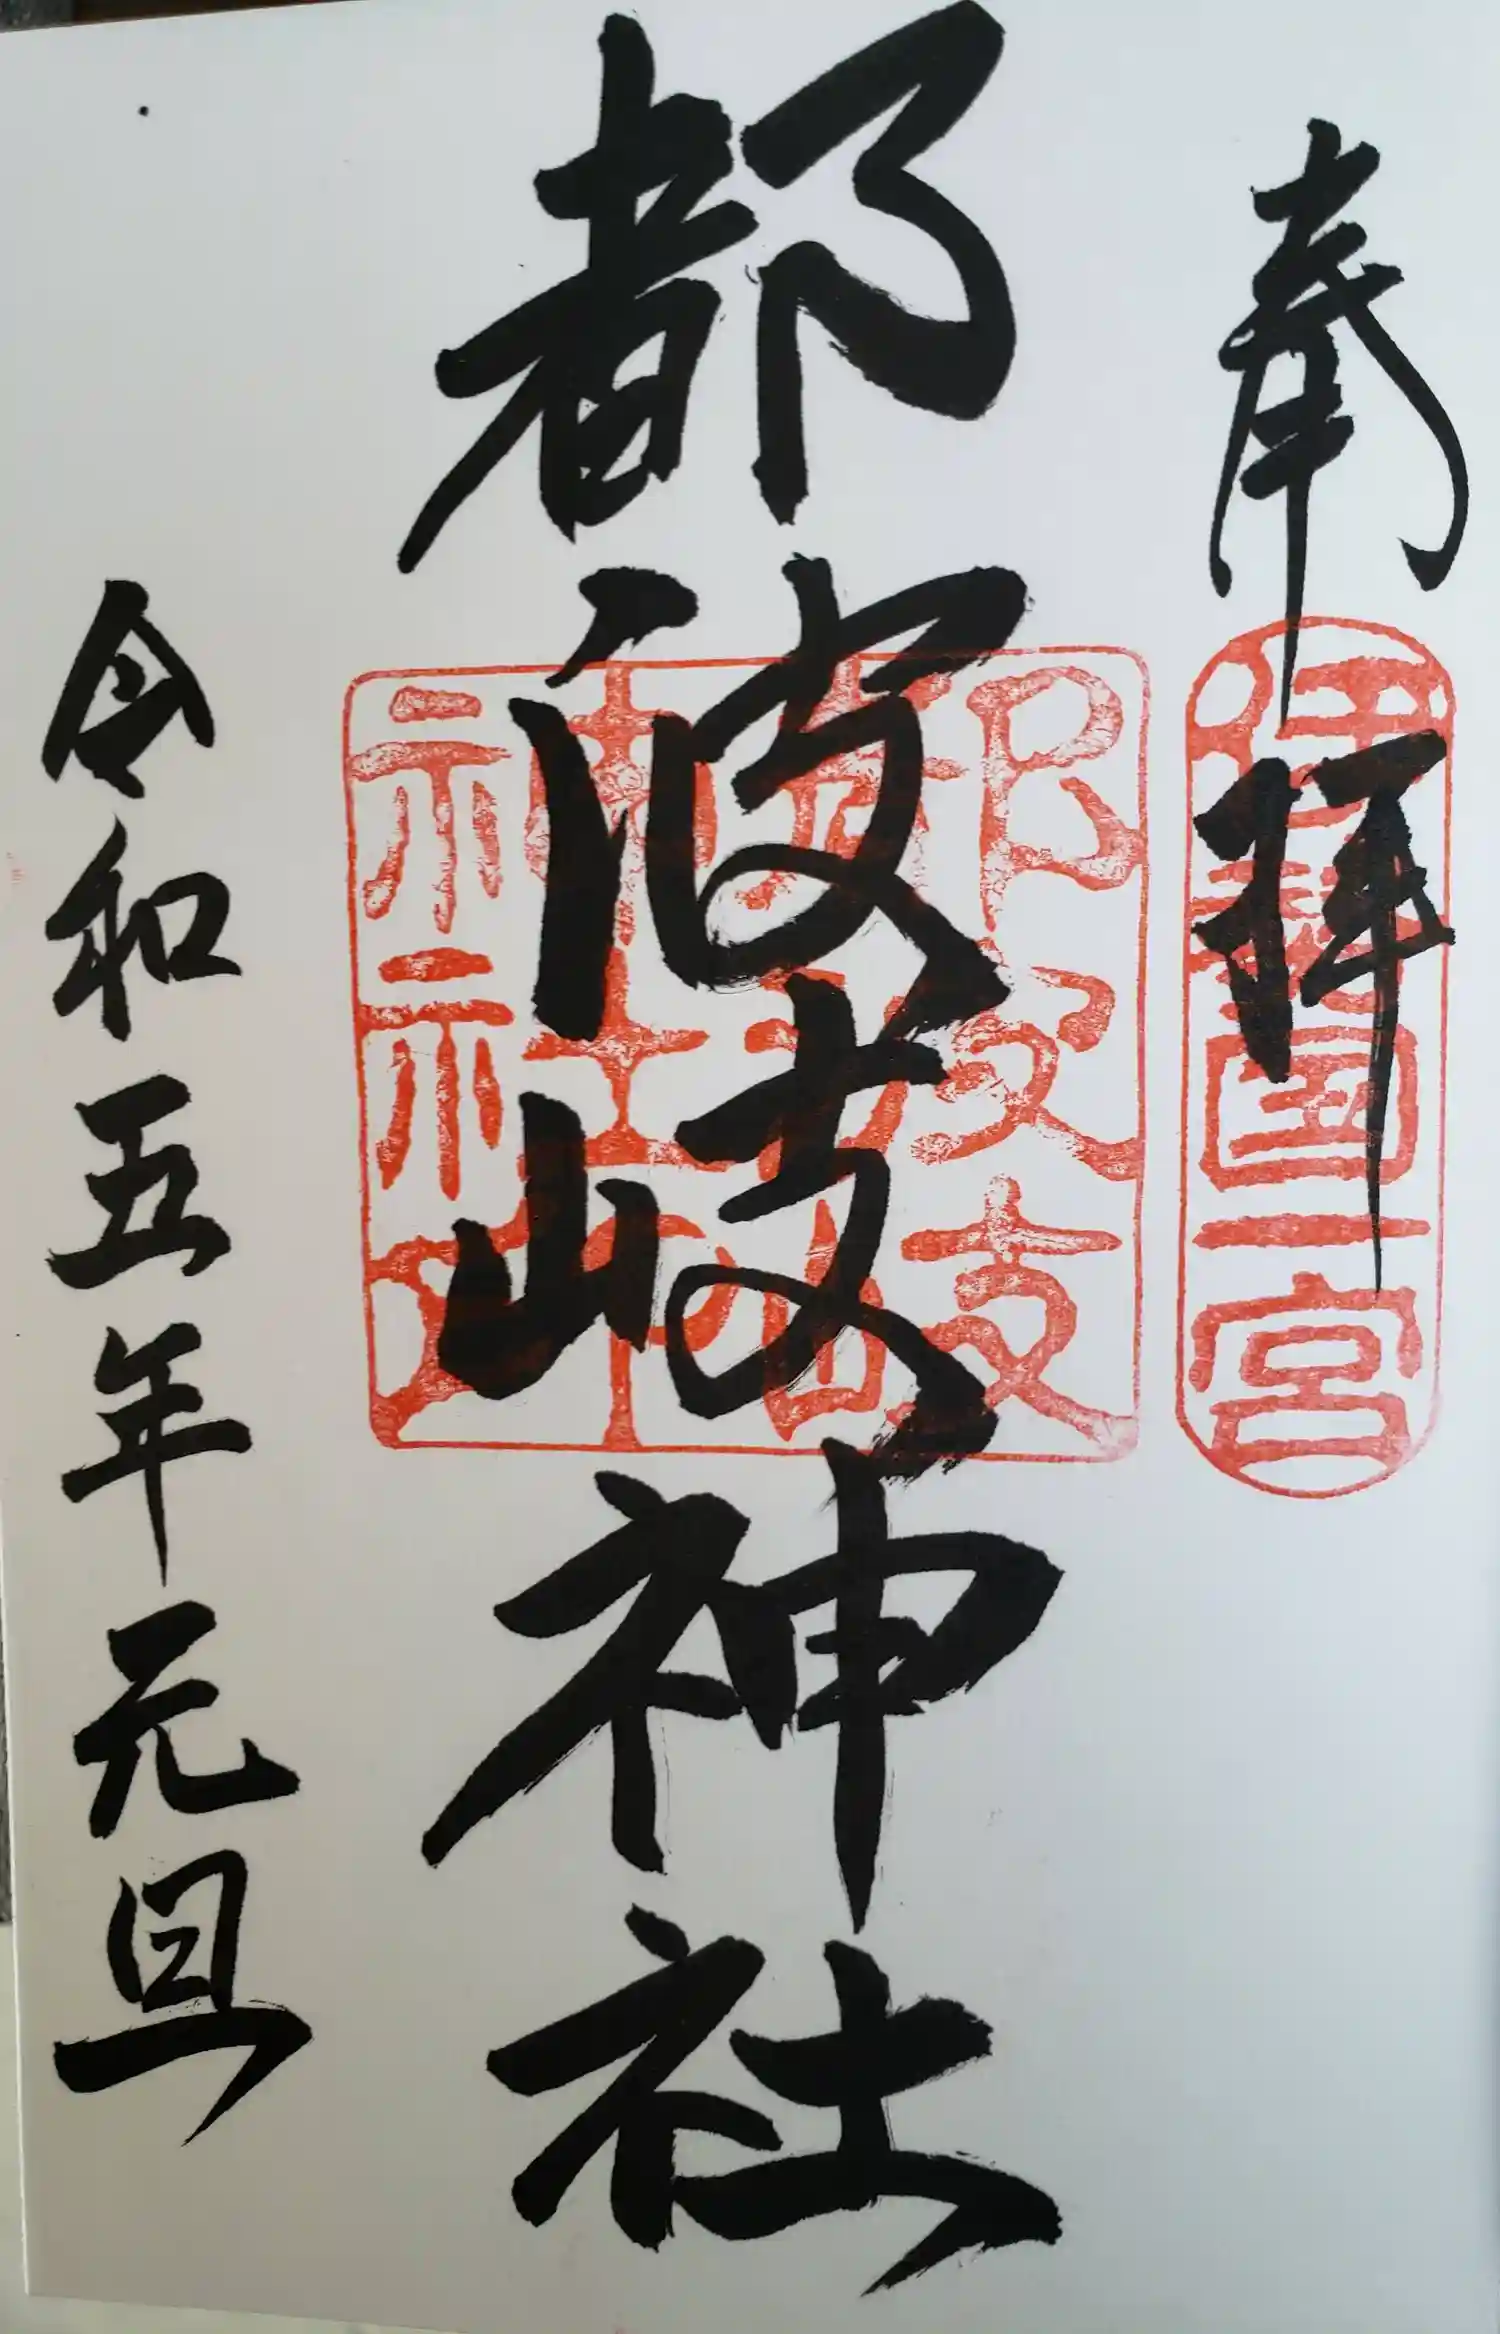 奉拝
伊勢国一宮
都波岐神社
都波岐
神社印
令和五年元旦